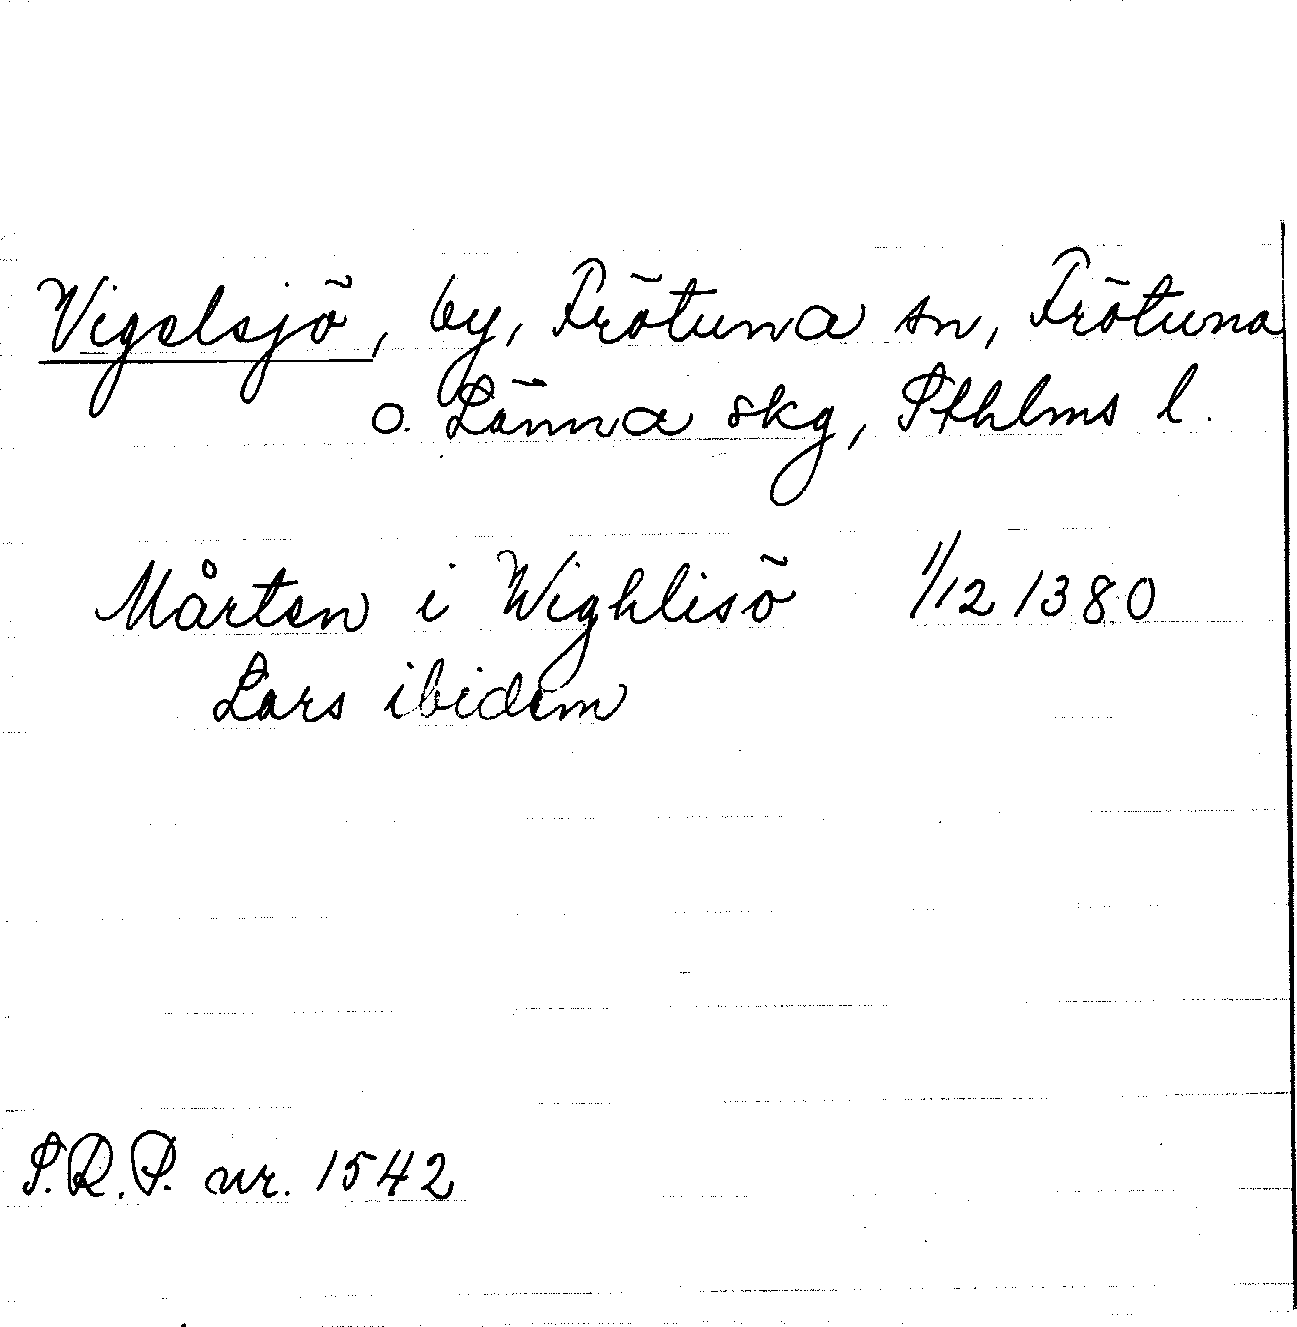 Vigelsjö, by, Frötuna sn, Frötuna
o. Länna skg, Sthlms l.
Mårten i Wighlisö 1/12 1380
Lars ibidem
S.R.P. nr. 1542